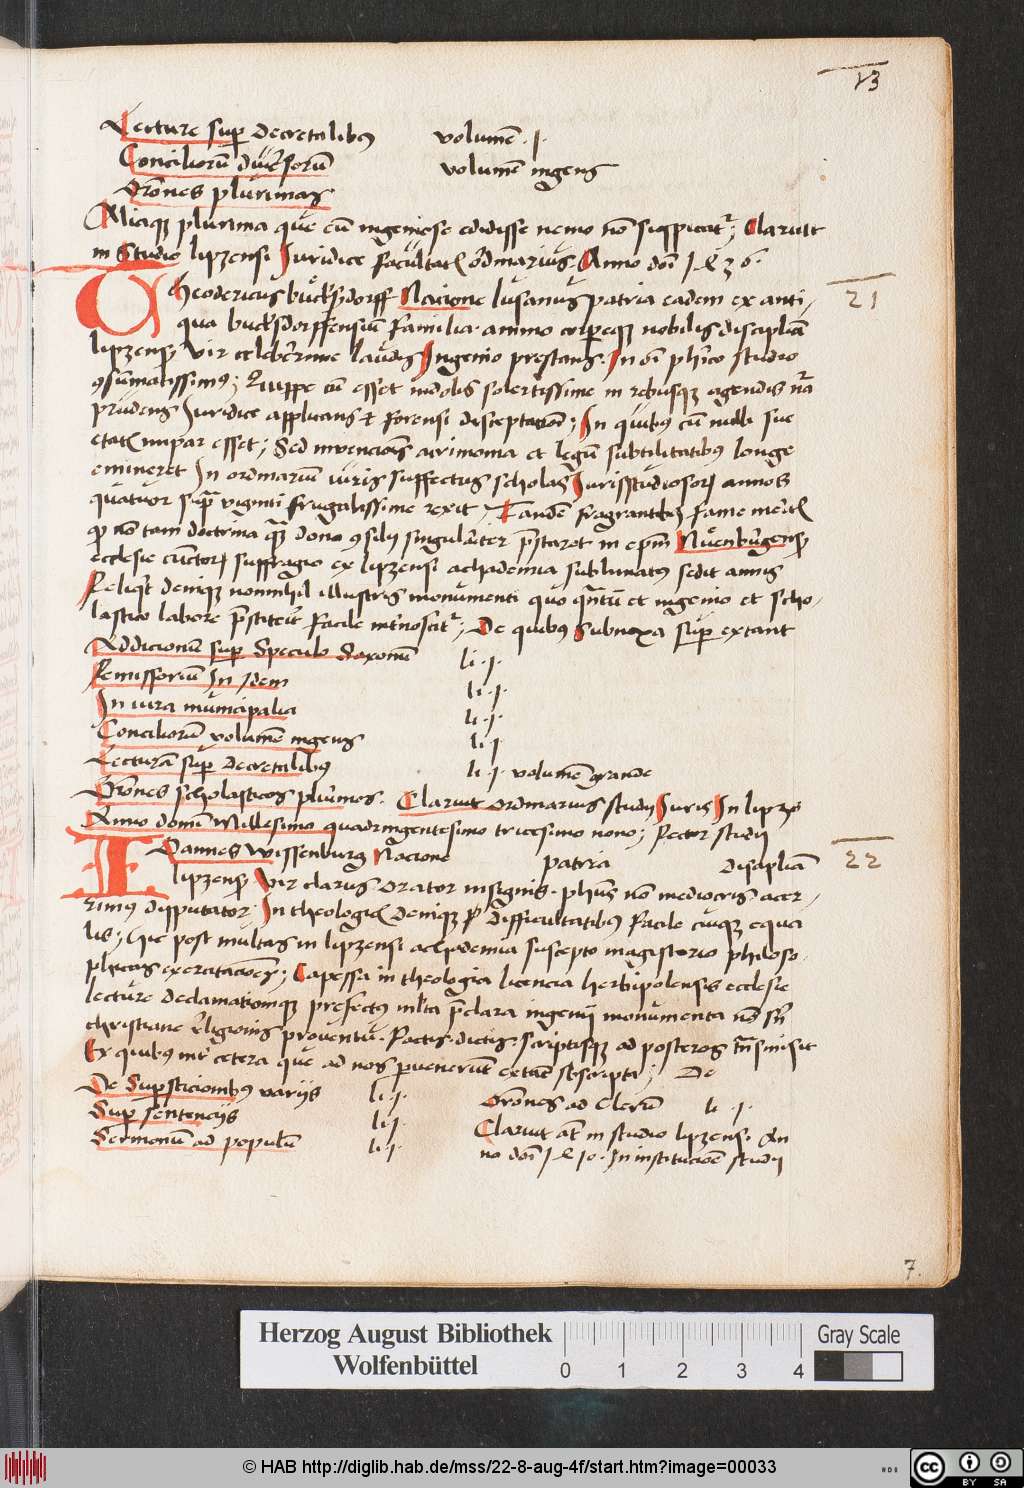 13
Lecture sup Decretalibus volumē .j.
Conciliorū diu'sorū volumen ingens
Orōnes plurimas
Aliaqꝫ plurima que cū ingeniose edidisse nemo nō suspicat'; Claruit
in Studio lipzensi Juridice facultatꝭ ordinarius. Anno dnī 1436.
Theodericus bucksdorff Nacione lusanus patria eadem ex anti- 21
qua bucksdorffensiū familia animo corpeqꝫ nobilis disciplīa
lipzensis vir celeberrime laudis Ingenio prestans. In oī phīco studio
ꝯsumatissimus; Quippe cū esset indolis solertissime in rebusqꝫ agendis
prudens Juridice applicans et forensi disceptatiōi; In quibus cū nulli sue
etatꝭ impar esset; Sed invencionis acrimonia et legū subtilitatibus longe
emineret In ordinariū iuris suffectus scholas Jurisstudiosorꝫ annos
quatuor supra viginti frugalissime rexit, Tandē fragrantibus fame meritꝭ
qꝫ nō tam doctrina quā dono ꝯsilij singulariter prestaret in epm Nuenburgensꝭ
ecclesie cunctorꝫ suffragio ex lipzensi achademia sublimatus sedit annis
Reliqt deniqꝫ nonnihil illustris monumenti quo quantū et ingenio et scho-
lastico labore prestiterit facile internoscit'; De quibus Subnoxa sup extant
Addicionum sup Speculo Saxonū li .j.
Remissoriū In Idem li .j.
In iura municipalia li .j.
Conciliorū volumē ingens li .j
Lecturā sup decretalibus li .j. volumē grande
Orōnes scholasticos plurimos. Claruit ordinarius studij Juris In lipzo
Anno domini Millesimo quadringentesimo tricesimo nono; Rector studij
Ioannes wissenburg Nacione patria disciplīa 22
lipzensꝭ Vir clarus orator insignis. phūs non mediocris acer-
rimus disputator. In theologicꝭ deniqꝫ p difficultatibus facile cuiqꝫ equa
lis; Hic post multas in lipzensi achademia suscepto magisterio philoso-
phicas exercitacōes; Capessa in theologia licencia herbipolensis ecclesie
lecture declamationiqꝫ prefectus mlta pclara ingenij monumenta nō sn̄
christiane religionis proventu. Factis. dictis. scriptisqꝫ ad posteros trāsmisit
Ex quibus int' cetera que ad nos puenerunt extāt sbscripta; De
De Supsticionibus varijs li .j. Orōnes ad Clerū li .j.
Sup sentencijs li .j. Claruit at in studio lipzensi. An
Sermonū ad populū li .j. no dnī 1410. In institucioē studij
7.
Herzog August Bibliothek
Wolfenbüttel
0 1 2 3 4
Gray Scale
© HAB http://diglib.hab.de/mss/22-8-aug-4f/start.htm?image=00033
cc BY SA